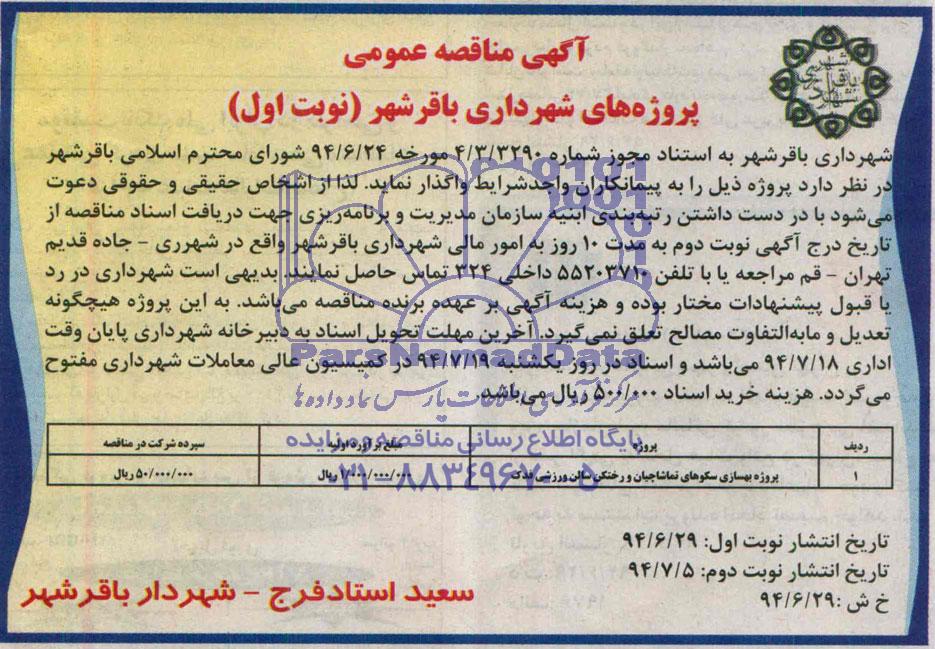 آگهی مناقصه عمومی
پروژه‌های شهرداری باقرشهر (نوبت اول)
شهرداری باقرشهر به استناد مجوز شماره ۴/۳/۳۲۹۰ مورخه ۹۴/۶/۲۴ شورای محترم اسلامی باقرشهر
در نظر دارد پروژه ذیل را به پیمانکاران واجدشرایط واگذار نماید. لذا از اشخاص حقیقی و حقوقی دعوت
می‌شود با در دست داشتن رتبه‌بندی ابنیه سازمان مدیریت و برنامه‌ریزی جهت دریافت اسناد مناقصه از
تاریخ درج آگهی نوبت دوم به مدت ۱۰ روز به امور مالی شهرداری باقرشهر واقع در شهرری - جاده قدیم
تهران - قم مراجعه یا با تلفن ۵۵۲۰۳۷۱۰ داخلی ۳۲۴ تماس حاصل نمایند. بدیهی است شهرداری در رد
یا قبول پیشنهادات مختار بوده و هزینه آگهی بر عهده برنده مناقصه می‌باشد. به این پروژه هیچگونه
تعدیل و مابه‌التفاوت مصالح تعلق نمی‌گیرد. آخرین مهلت تحویل اسناد به دبیرخانه شهرداری پایان وقت
اداری ۹۴/۷/۱۸ می‌باشد و اسناد در روز یکشنبه ۹۴/۷/۱۹ در کمیسیون عالی معاملات شهرداری مفتوح
می‌گردد. هزینه خرید اسناد ۵۰۰/۰۰۰ ریال می‌باشد.
ParsNamadData
مرکز فرآوری اطلاعات پارس نماد داده‌ها
پایگاه اطلاع رسانی مناقصه و مزایده
۰۲۱-۸۸۳۴۹۶۷۰-۵
ردیف پروژه مبلغ برآورد اولیه سپرده شرکت در مناقصه
۱ پروژه بهسازی سکوهای تماشاچیان و رختکن سالن ورزشی فدک ۱/۰۰۰/۰۰۰/۰۰۰ ریال ۵۰/۰۰۰/۰۰۰ ریال
تاریخ انتشار نوبت اول: ۹۴/۶/۲۹
تاریخ انتشار نوبت دوم: ۹۴/۷/۵
خ ش: ۹۴/۶/۲۹
سعید استادفرج - شهردار باقرشهر